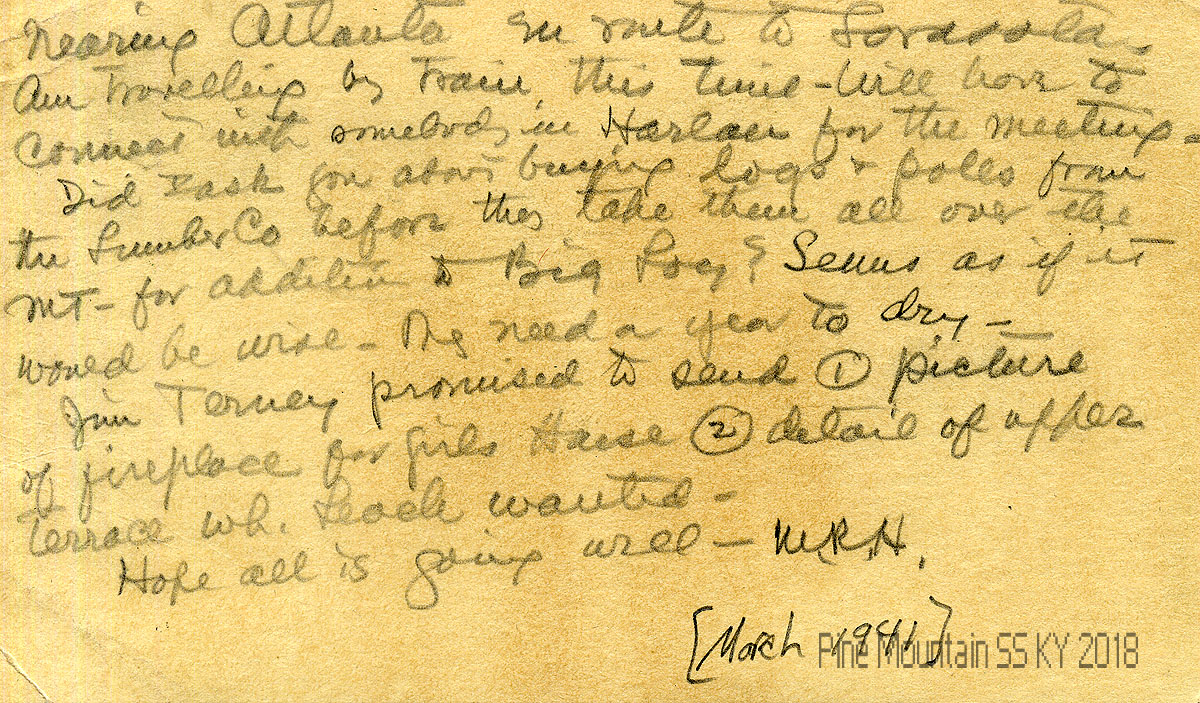 Nearing Atlanta en route to Sarasota
Am travelling by train this time - Will have to
connect with somebody in Harlan for the meeting -
Did I ask you about buying logs & poles from
the Lumber Co before they take them all over the
MT - for addition to Big Log? Seems as if it
would be wise - They need a year to dry -
Jim Terney promised to send ① picture
of fireplace for Girls House ② detail of upper
Terrace wh. Leach wanted -
Hope all is going well - M.R.H.
[March 1941]
Pine Mountain SS KY 2018